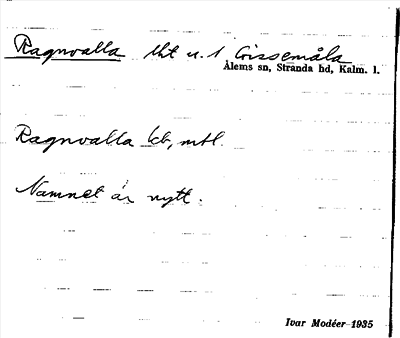 Ragnvalla lht u. 1 Gissemåla
Ålems sn, Stranda hd, Kalm. l.
Ragnvalla kb, mtl.
Namnet är nytt.
Ivar Modéer 1935